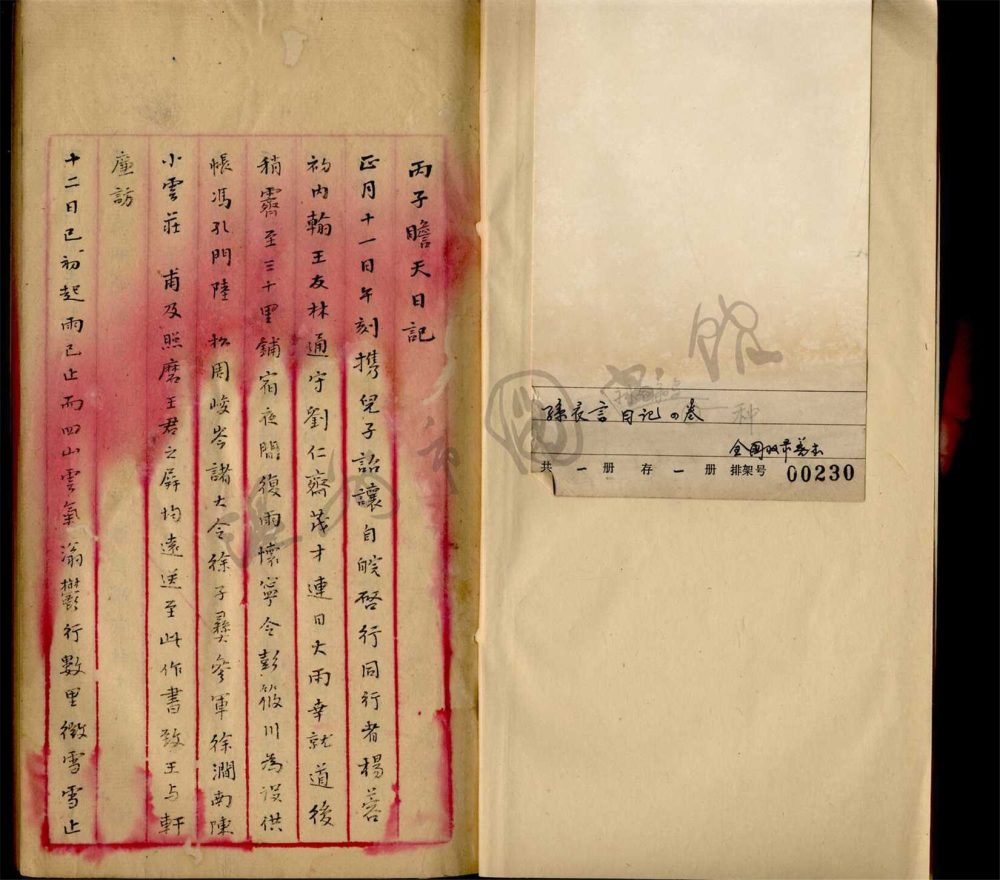 丙子瞻天日記
正月十一日午刻携兒子詒讓自皖啓行同行者楊蓉
初内翰王友林通守劉仁齋茂才連日大雨幸就道後
稍霽至三十里鋪宿夜間復雨懷寧令彭筱川為設供
帳馮孔門陸 松周峻岑諸大令徐子彝參軍徐澗南陳
小雲莊 甫及照磨王君之屏均遠送至此作書致王与軒
廉訪
十二日巳初起雨已止而四山雲氣滃鬱行數里微雪雪止
孫衣言日記四卷
種
全国收录善本
共一册存一册排架号 00230